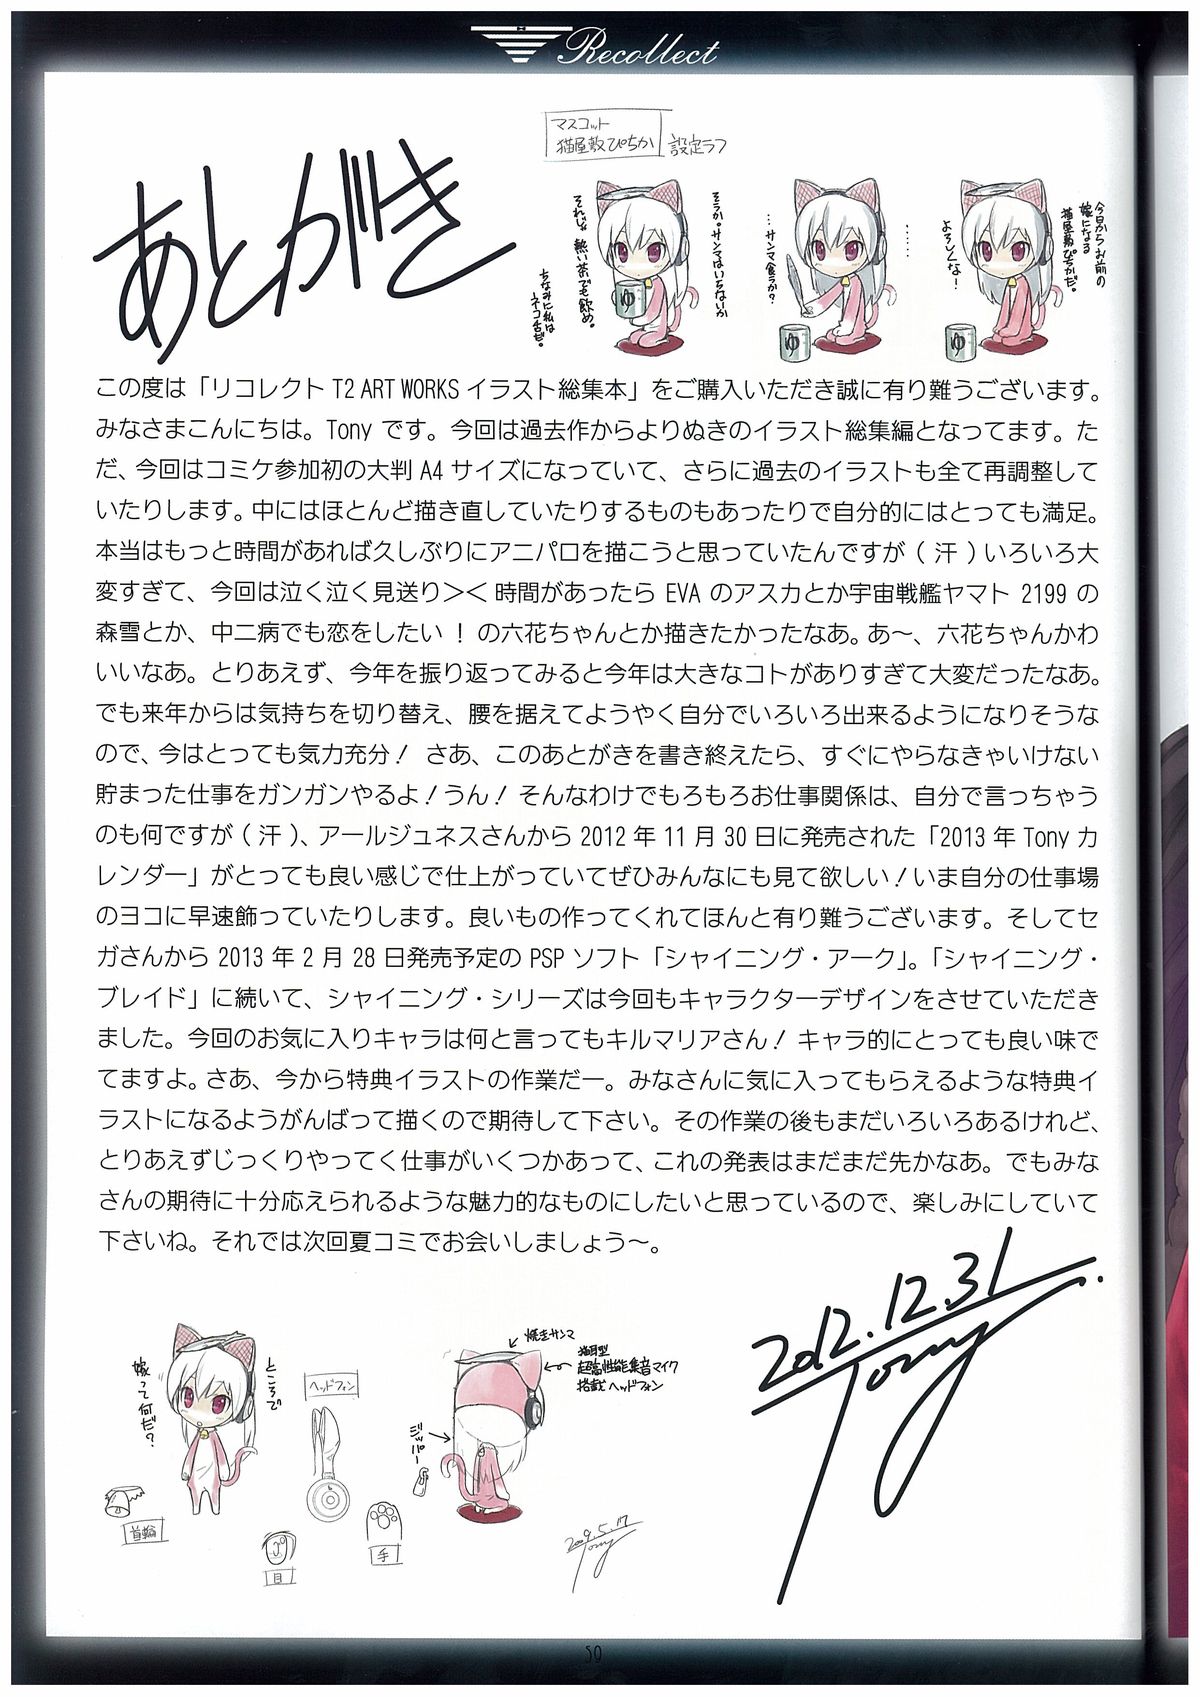 Recollect
マスコット
猫屋敷ぴちか 設定ラフ
あとがき
今日からお前の
嫁になる
猫屋敷ぴちかだ。
よろしくな!
……
…サンマ食うか?
そうか。サンマはいらないか
それじゃ 熱い茶でも飲め。
ちなみに私は
ネコ舌だ。
ゆ
ゆ
ゆ
この度は「リコレクト T2 ART WORKS イラスト総集本」をご購入いただき誠に有り難うございます。
みなさまこんにちは。Tony です。今回は過去作からよりぬきのイラスト総集編となってます。た
だ、今回はコミケ参加初の大判 A4 サイズになっていて、さらに過去のイラストも全て再調整して
いたりします。中にはほとんど描き直していたりするものもあったりで自分的にはとっても満足。
本当はもっと時間があれば久しぶりにアニパロを描こうと思っていたんですが ( 汗 ) いろいろ大
変すぎて、今回は泣く泣く見送り＞＜ 時間があったら EVA のアスカとか宇宙戦艦ヤマト 2199 の
森雪とか、中二病でも恋をしたい ! の六花ちゃんとか描きたかったなあ。あ～、六花ちゃんかわ
いいなあ。とりあえず、今年を振り返ってみると今年は大きなコトがありすぎて大変だったなあ。
でも来年からは気持ちを切り替え、腰を据えてようやく自分でいろいろ出来るようになりそうな
ので、今はとっても気力充分 ! さあ、このあとがきを書き終えたら、すぐにやらなきゃいけない
貯まった仕事をガンガンやるよ ! うん ! そんなわけでもろもろお仕事関係は、自分で言っちゃう
のも何ですが ( 汗 )、アールジュネスさんから 2012 年 11 月 30 日に発売された「2013 年 Tony カ
レンダー」がとっても良い感じで仕上がっていてぜひみんなにも見て欲しい ! いま自分の仕事場
のヨコに早速飾っていたりします。良いもの作ってくれてほんと有り難うございます。そしてセ
ガさんから 2013 年 2 月 28 日発売予定の PSP ソフト「シャイニング・アーク」。「シャイニング・
ブレイド」に続いて、シャイニング・シリーズは今回もキャラクターデザインをさせていただき
ました。今回のお気に入りキャラは何と言ってもキルマリアさん ! キャラ的にとっても良い味で
てますよ。さあ、今から特典イラストの作業だー。みなさんに気に入ってもらえるような特典イ
ラストになるようがんばって描くので期待して下さい。その作業の後もまだいろいろあるけれど、
とりあえずじっくりやってく仕事がいくつかあって、これの発表はまだまだ先かなあ。でもみな
さんの期待に十分応えられるような魅力的なものにしたいと思っているので、楽しみにしていて
下さいね。それでは次回夏コミでお会いしましょう～。
2012.12.31
Tony
ところで
嫁って何だ?
ヘッドフォン
焼きサンマ
猫耳型
超高性能集音マイク
搭載ヘッドフォン
ジッパー
首輪
目
手
2009.5.17
Tony
50